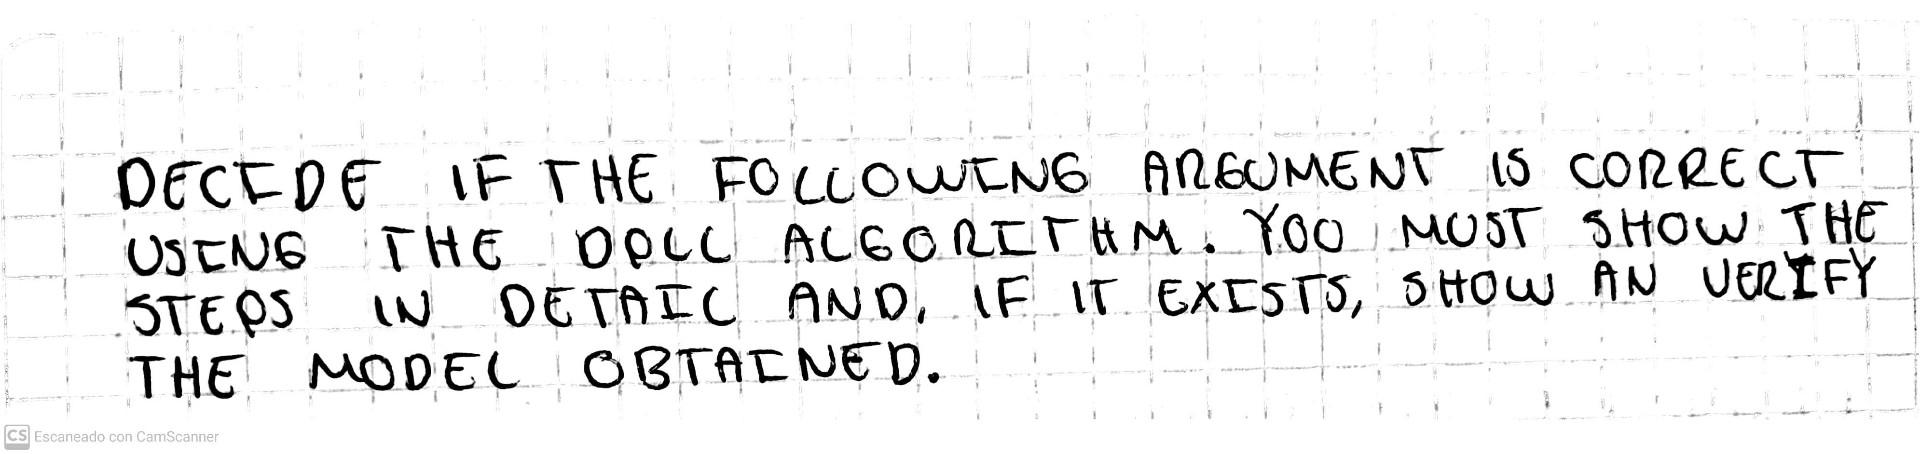 DECIDE IF THE FOLLOWING ARGUMENT IS CORRECT
USING THE DPLL ALGORITHM. YOU MUST SHOW THE
STEPS IN DETAIL AND, IF IT EXISTS, SHOW AN VERIFY
THE MODEL OBTAINED.
CS Escaneado con CamScanner